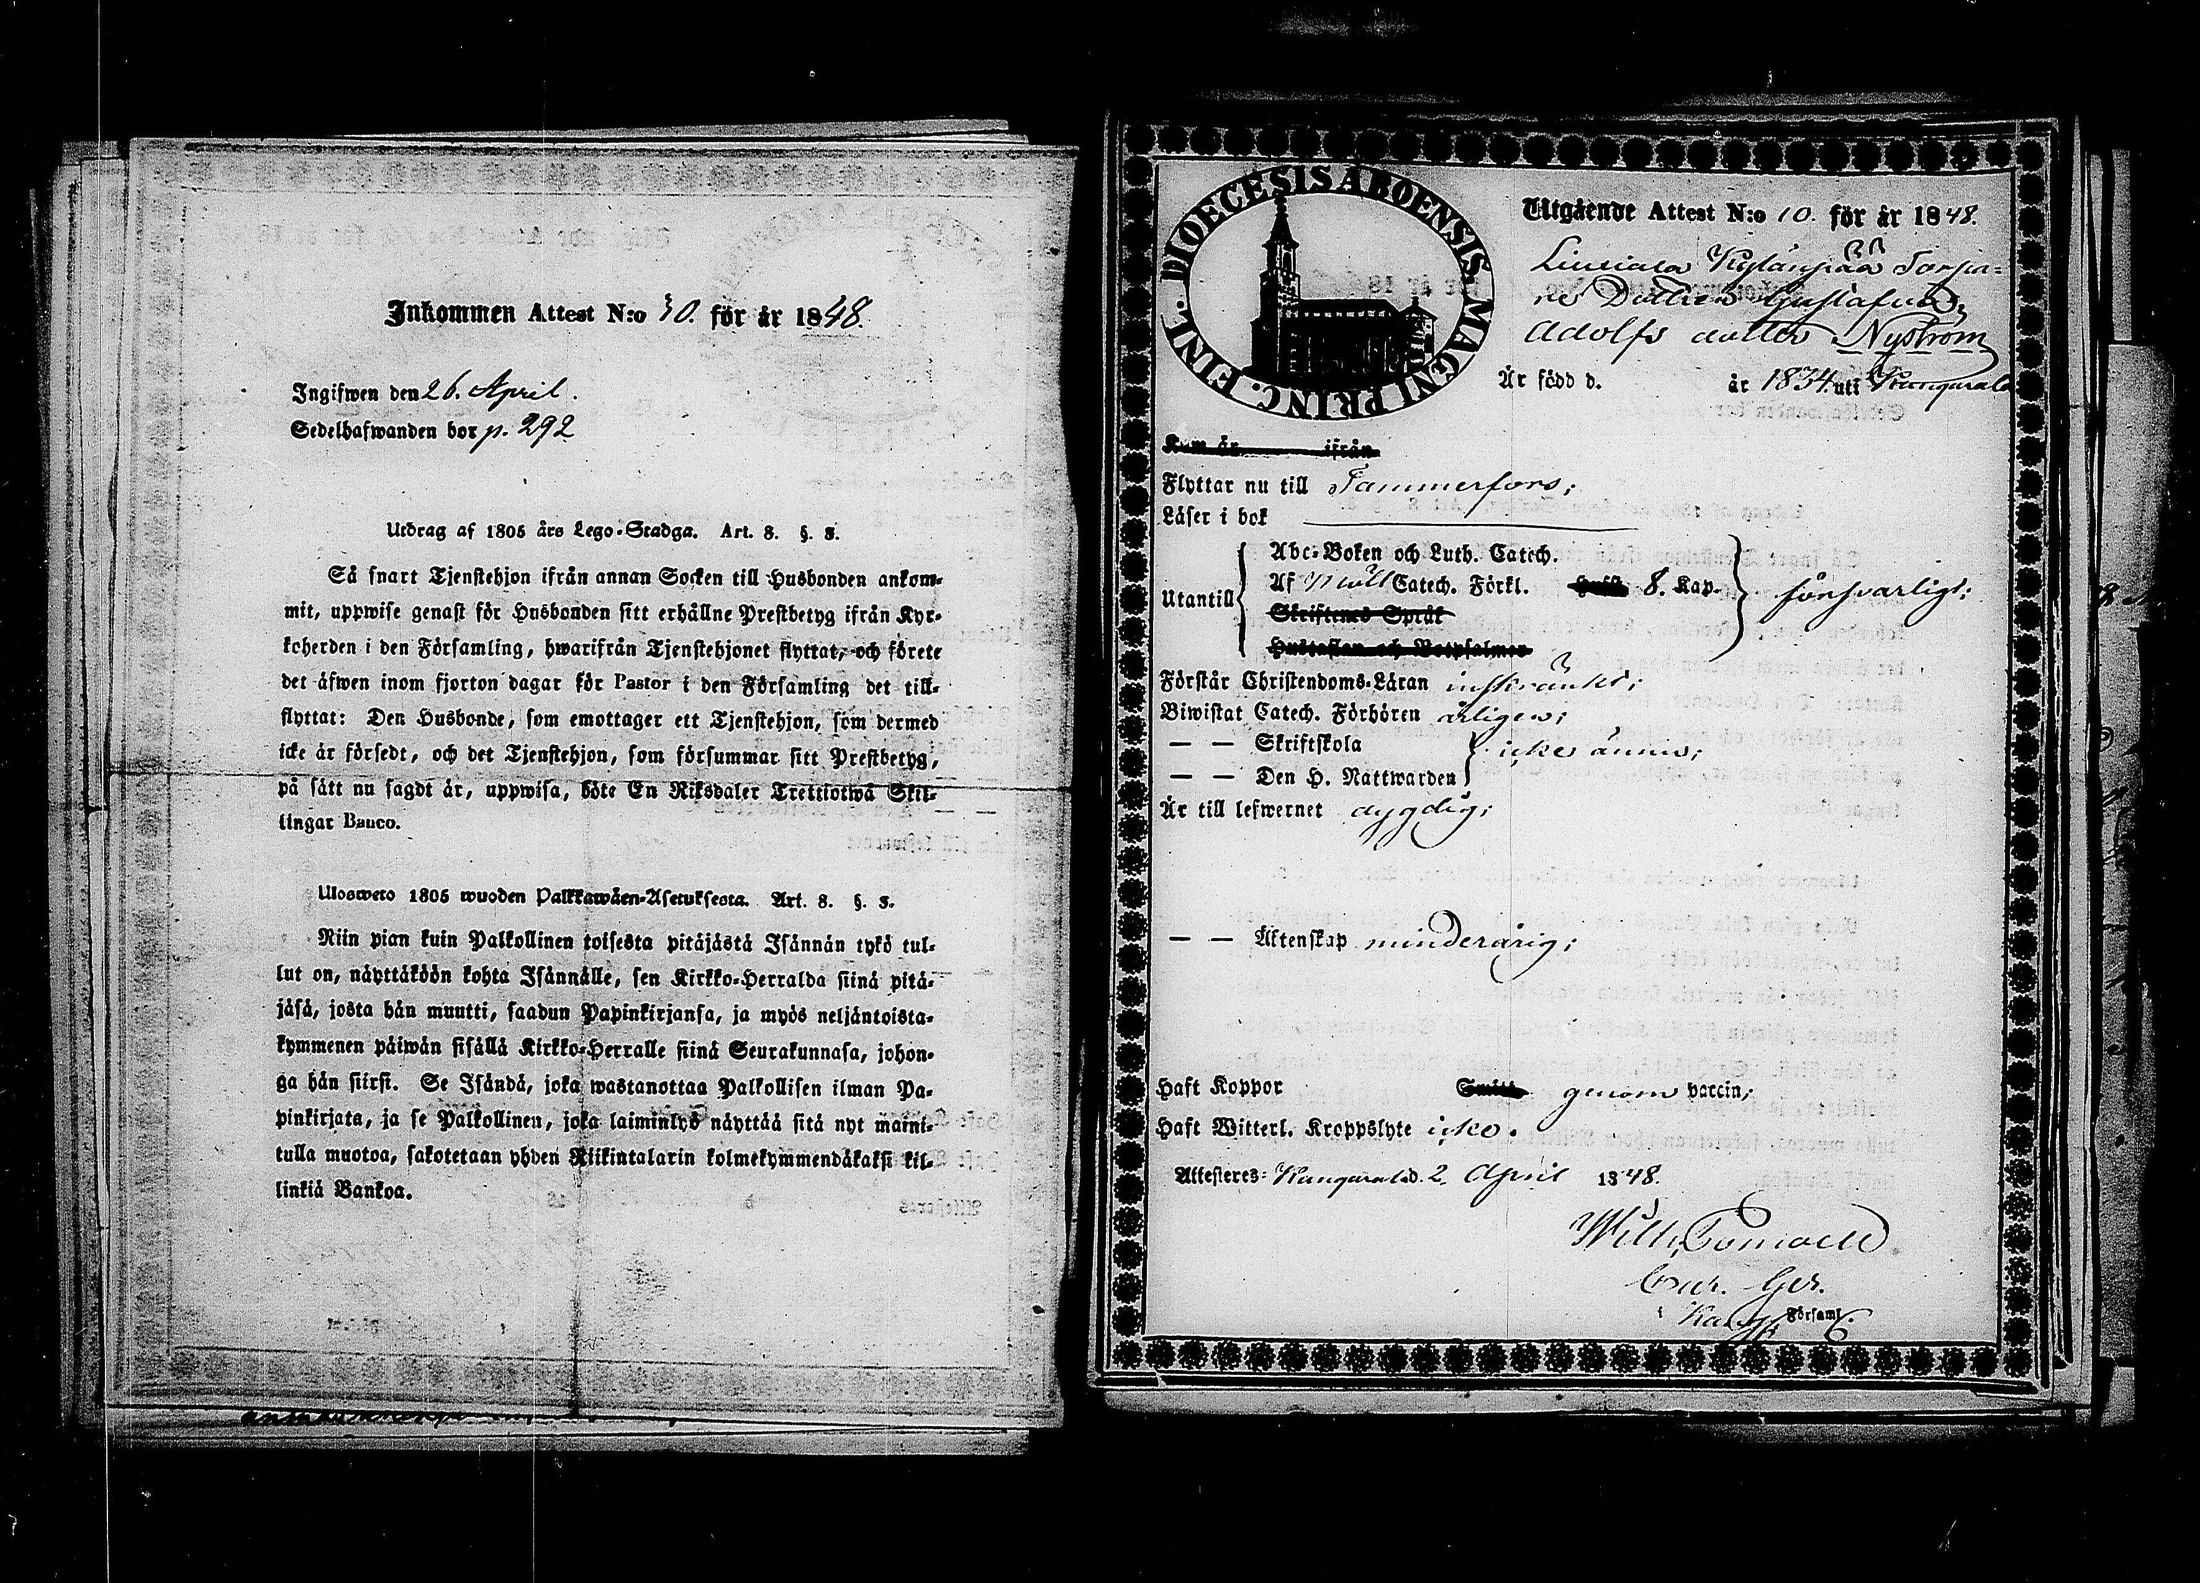 Inkommen Attest N:o 30. för år 1848.
Ingifwen den 26. April.
Sedelhafwanden bor p. 292
Utdrag af 1805 års Lego-Stadga. Art. 8. §. 3.
Så snart Tjenstehjon ifrån annan Socken till Husbonden ankom-
mit, uppwise genast för Husbonden sitt erhållne Prestbetyg ifrån Kyr-
koherden i den Församling, hwarifrån Tjenstehjonet flyttat, och förete
det äfwen inom fjorton dagar för Pastor i den Församling det till-
flyttat: Den Husbonde, som emottager ett Tjenstehjon, som dermed
icke är försedt, och det Tjenstehjon, som försummar sitt Prestbetyg,
på sätt nu sagdt är, uppwisa, böte En Riksdaler Trettiotwå Skil-
lingar Banco.
Ulosweto 1805 wuoden Palkkawäen-Asetuksesta. Art. 8. §. 3.
Niin pian kuin Palkollinen toisesta pitäjästä Isännän tykö tul-
lut on, näyttäköön kohta Isännälle, sen Kirkko-Herralda siinä pitä-
jäsä, josta hän muutti, saadun Papinkirjansa, ja myös neljäntoista-
kymmenen päiwän sisällä Kirkko-Herralle siinä Seurakunnasa, johon-
ga hän siirsi. Se Isändä, joka wastanottaa Palkollisen ilman Pa-
pinkirjata, ja se Palkollinen, joka laiminlyö näyttää sitä nyt maini-
tulla muotoa, sakotetaan yhden Riikintalarin kolmekymmendäkaksi kil-
linkiä Bankoa.
DIOECESIS ABOENSIS MAGNI PRINC. FINL.
Utgående Attest N:o 10. för år 1848.
Liuksiala Kylänpää Torpa-
re Dottren Gustafva
Adolfs dotter Nyström
Är född d. år 1834. uti Kangasala
Kom år ifrån
Flyttar nu till Tammerfors;
Läser i bok
Utantill
Abc-Boken och Luth. Catech.
Af Catech. Förkl. 8. Kap.
Skriftenes Språk
Hustaflan och Botpsalmer
försvarligt;
Förstår Christendoms-Läran inskränkt;
Biwistat Catech. Förhören årligen;
— — Skriftskola
— — Den H. Nattwarden
icke ännu;
Är till lefwernet dygdig;
— — Äktenskap minderårig;
Haft Koppor genom vaccin;
Haft Witterl. Kroppslyte icke.
Attesteres: Kangasala d. 2 April 1848.
Wilh.
Cur. Ger.
i Kang. Församl.